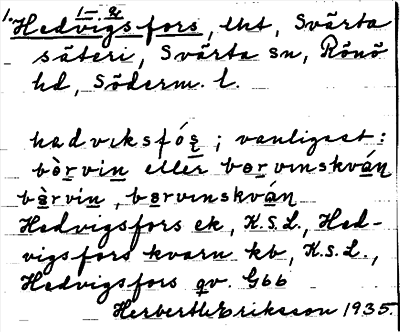 1. 1–2
Hedvigsfors, lht, Svärta
säteri, Svärta sn, Rönö
hd, Söderm. l.
hadviksfós̨ ; vanligast:
bὸrvin eller bɵrvinskván
bὸrvin, bɵrvinskván
Hedvigsfors ek, K.S.L., Hed-
vigsfors kvarn kb, K.S.L.,
Hedvigsfors qv. Gbb
Herbert Eriksson 1935.